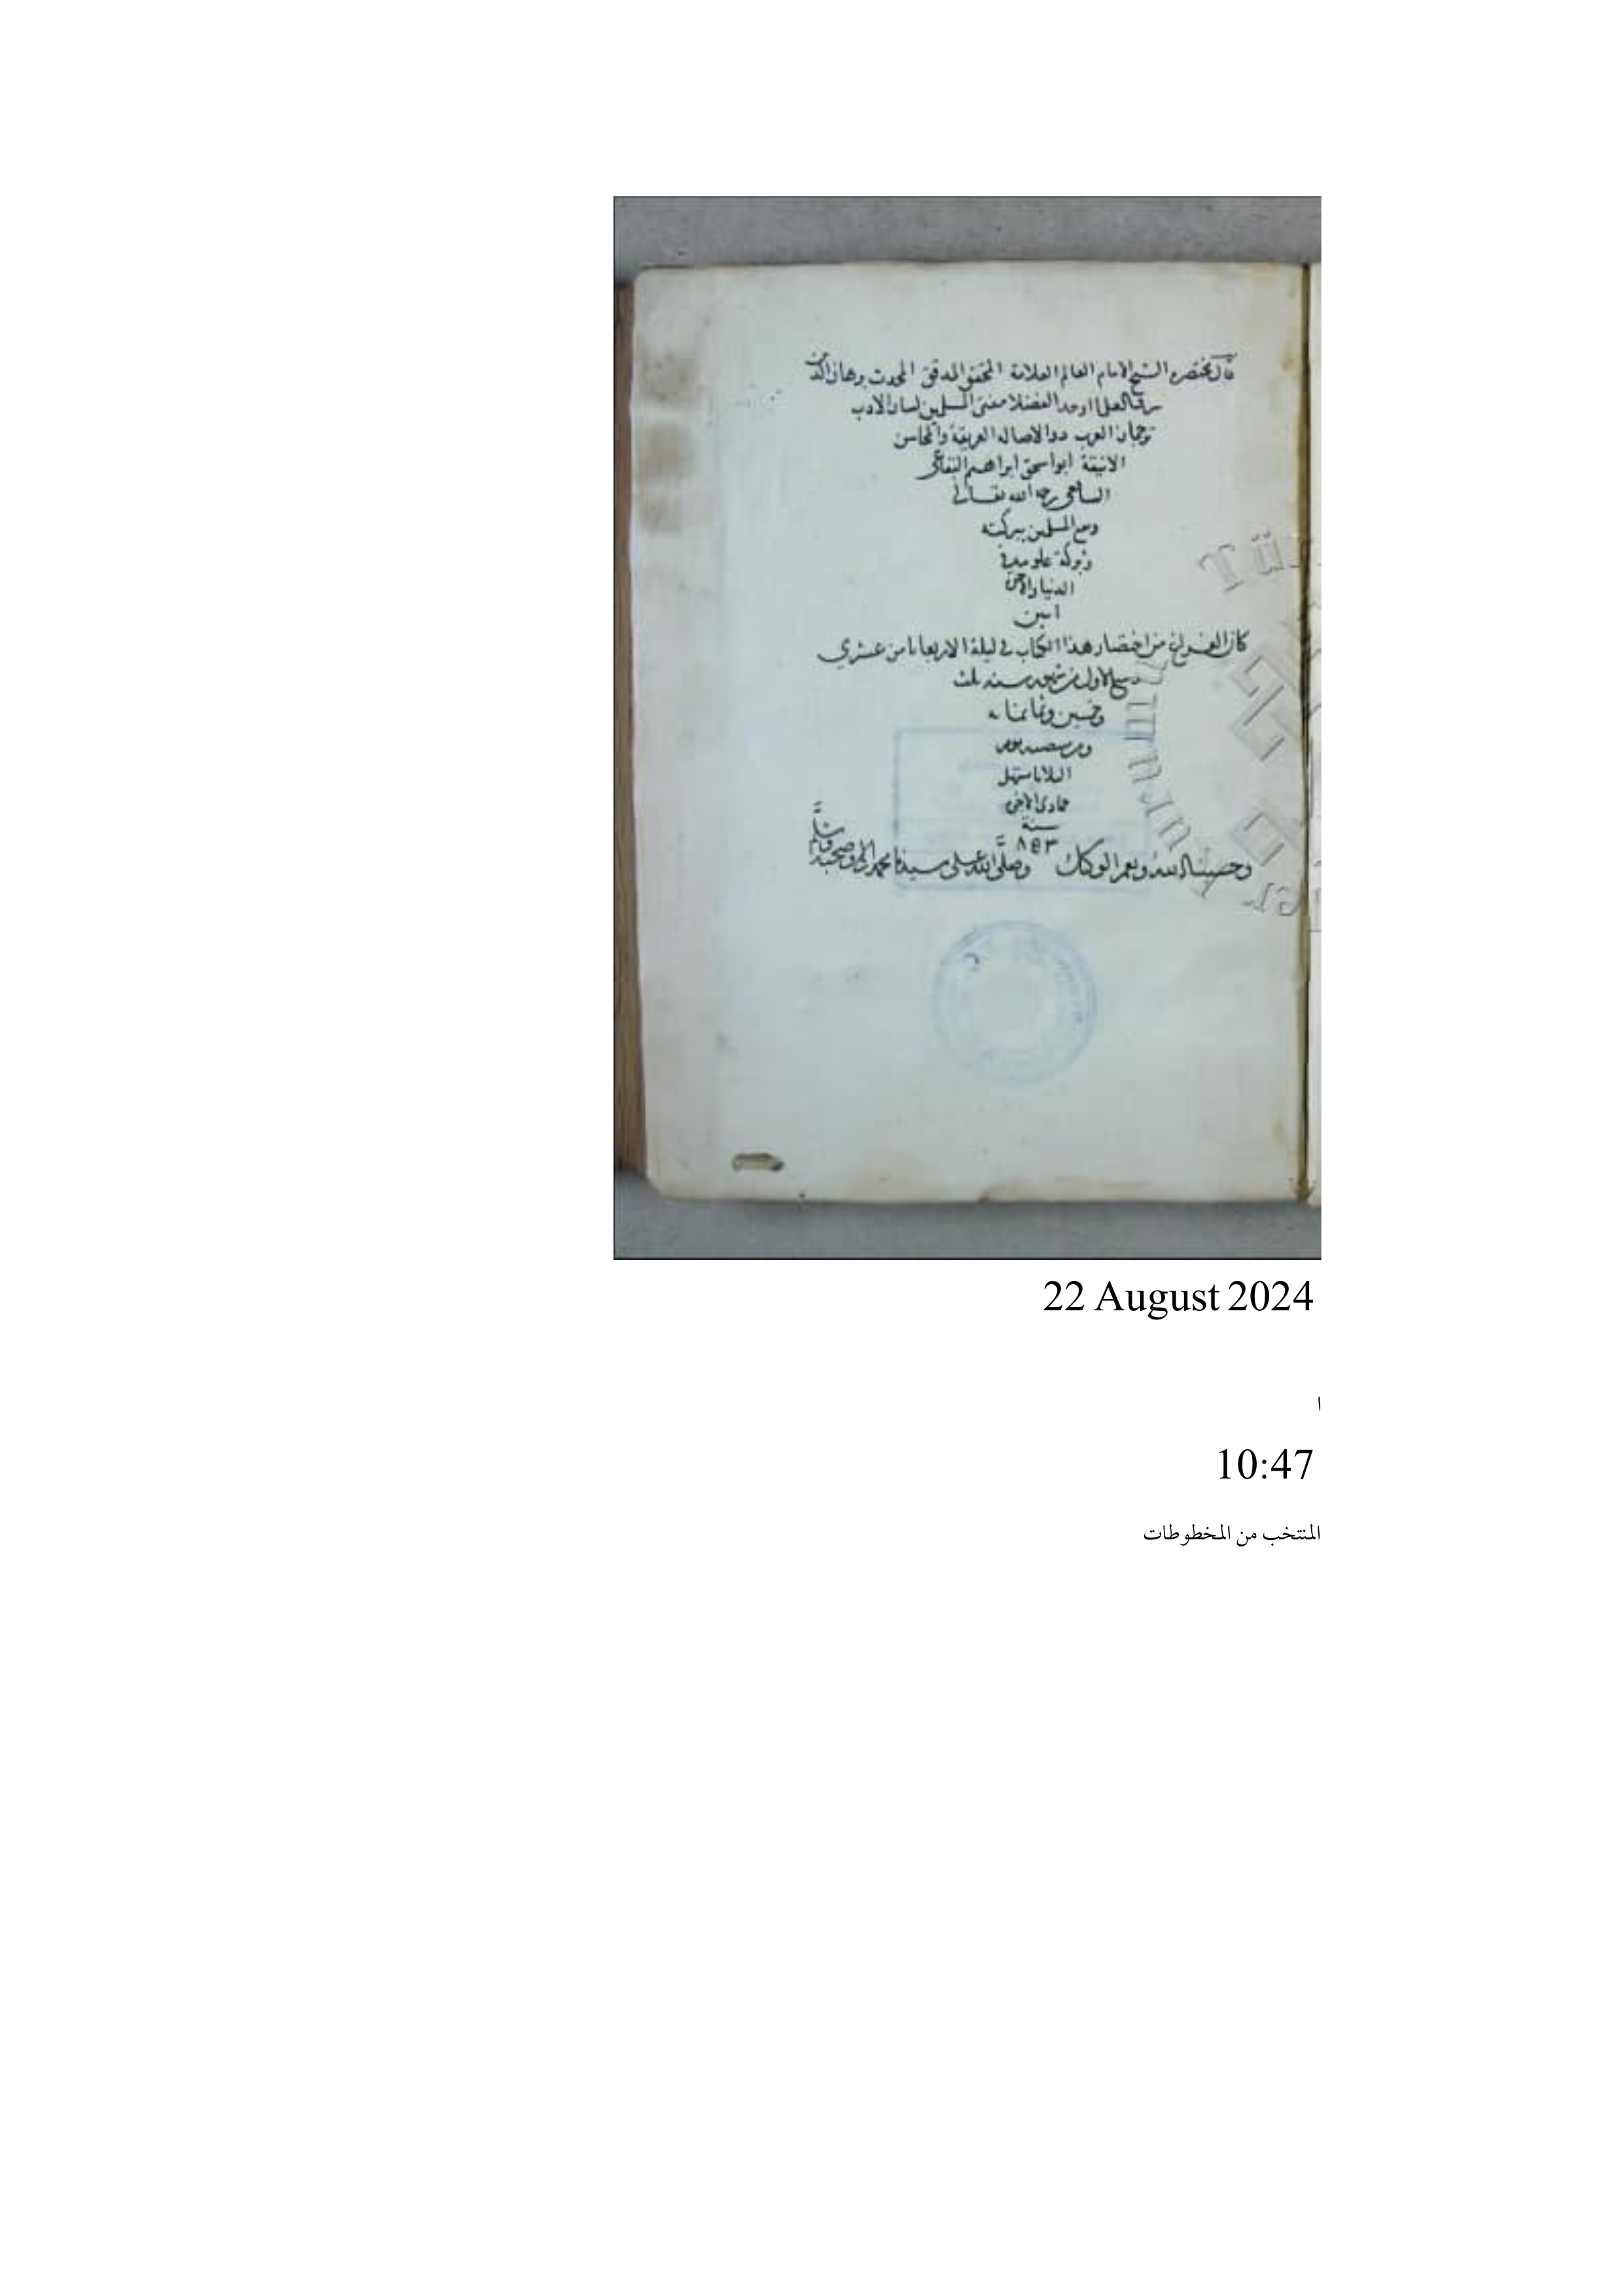 قال مختصره الشيخ الامام العالم العلامة المحقق المدقق المحدث برهان الدين
العلما اوحد الفضلا مفتى المسلمين لسان الادب
ترجمان العرب ذو الاصاله العريقة والمحاسن
الانيقة ابو اسحق ابراهيم البقاعى
الشافعى رحمه الله تعالى
المسلمين ببركته
وبركة علومه فى
الدنيا والاخرة
امين
كان الفراغ من اختصار هذا الكتاب فى ليلة الاربعا ثامن عشرى
ربيع الاول من سنه ثلث
وخمسين وثمانمائه
يوم
الثلاثا مستهل
جمادى الاخرى
سنة
٨٥٣
وحسبنا الله ونعم الوكيل وصلى الله على سيدنا محمد واله وصحبه وسلم
22 August 2024
ا
10:47
المنتخب من المخطوطات